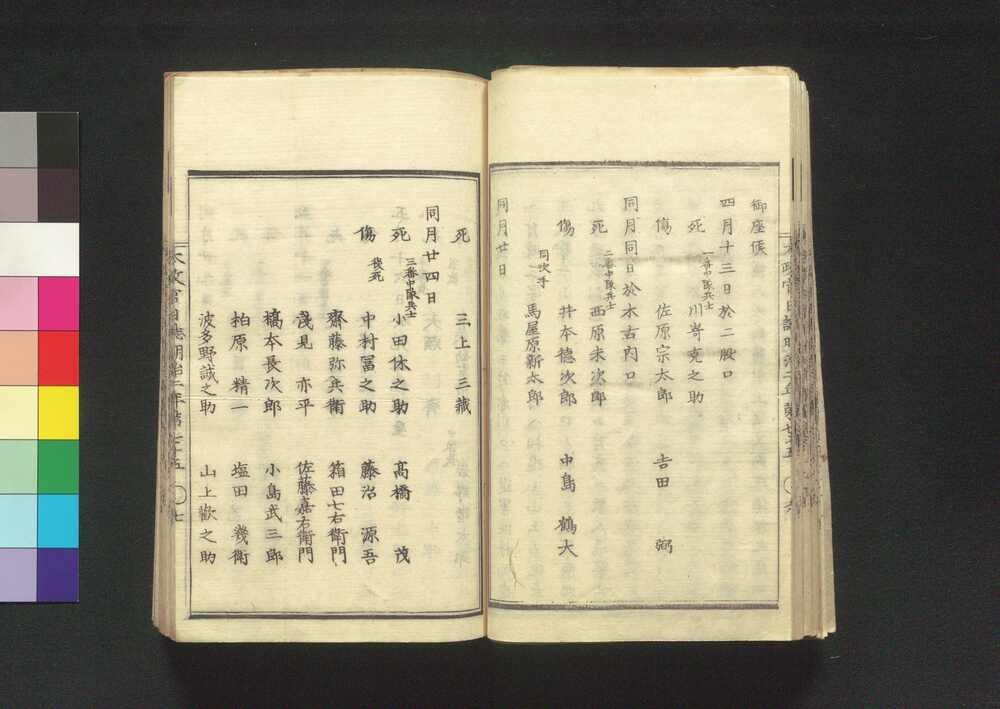 御座候
四月十三日於二股口
死 一番中隊兵士 川嵜克之助
傷 佐原宗太郎 吉田 弼
同月同日於木古内口
死 二番中隊兵士 西原末次郎
傷 井本德次郎 中島 鶴太
同次手 馬屋原新太郎
同月廿日
死 三上三藏
同月廿四日
死 三番中隊兵士 小田休之助 髙橋 茂
傷 後死 中村冨之助 藤治 源吾
齋藤弥兵衛 箱田七右衛門
茂見 亦平 佐藤嘉右衛門
槁本長次郎 小島武三郎
柏原 精一 塩田 幾衛
波多野誠之助 山上歡之助
太政官日誌明治二年第七十五 〇七